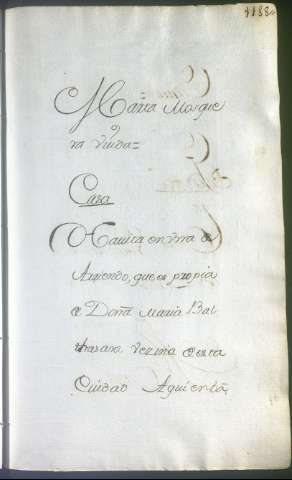 Maria Mosque
ra Viuda=
Casa
Havita en vna de
Aruiendo, que es propia
de Doña Maria Bal
thasara vezina de esta
Ciudad Aquien da